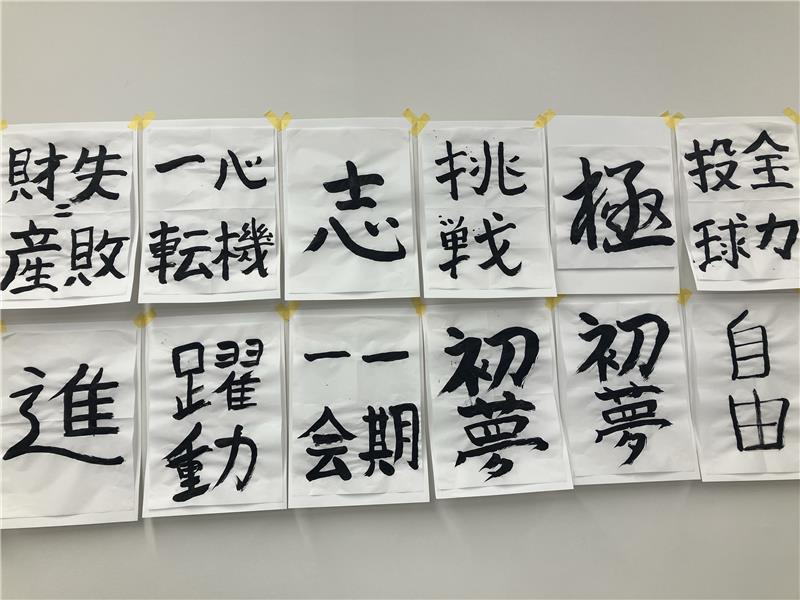 失敗
=
財産
心機
一転
志
挑戦
極
全力
投球
進
躍動
一期
一会
初夢
初夢
自由